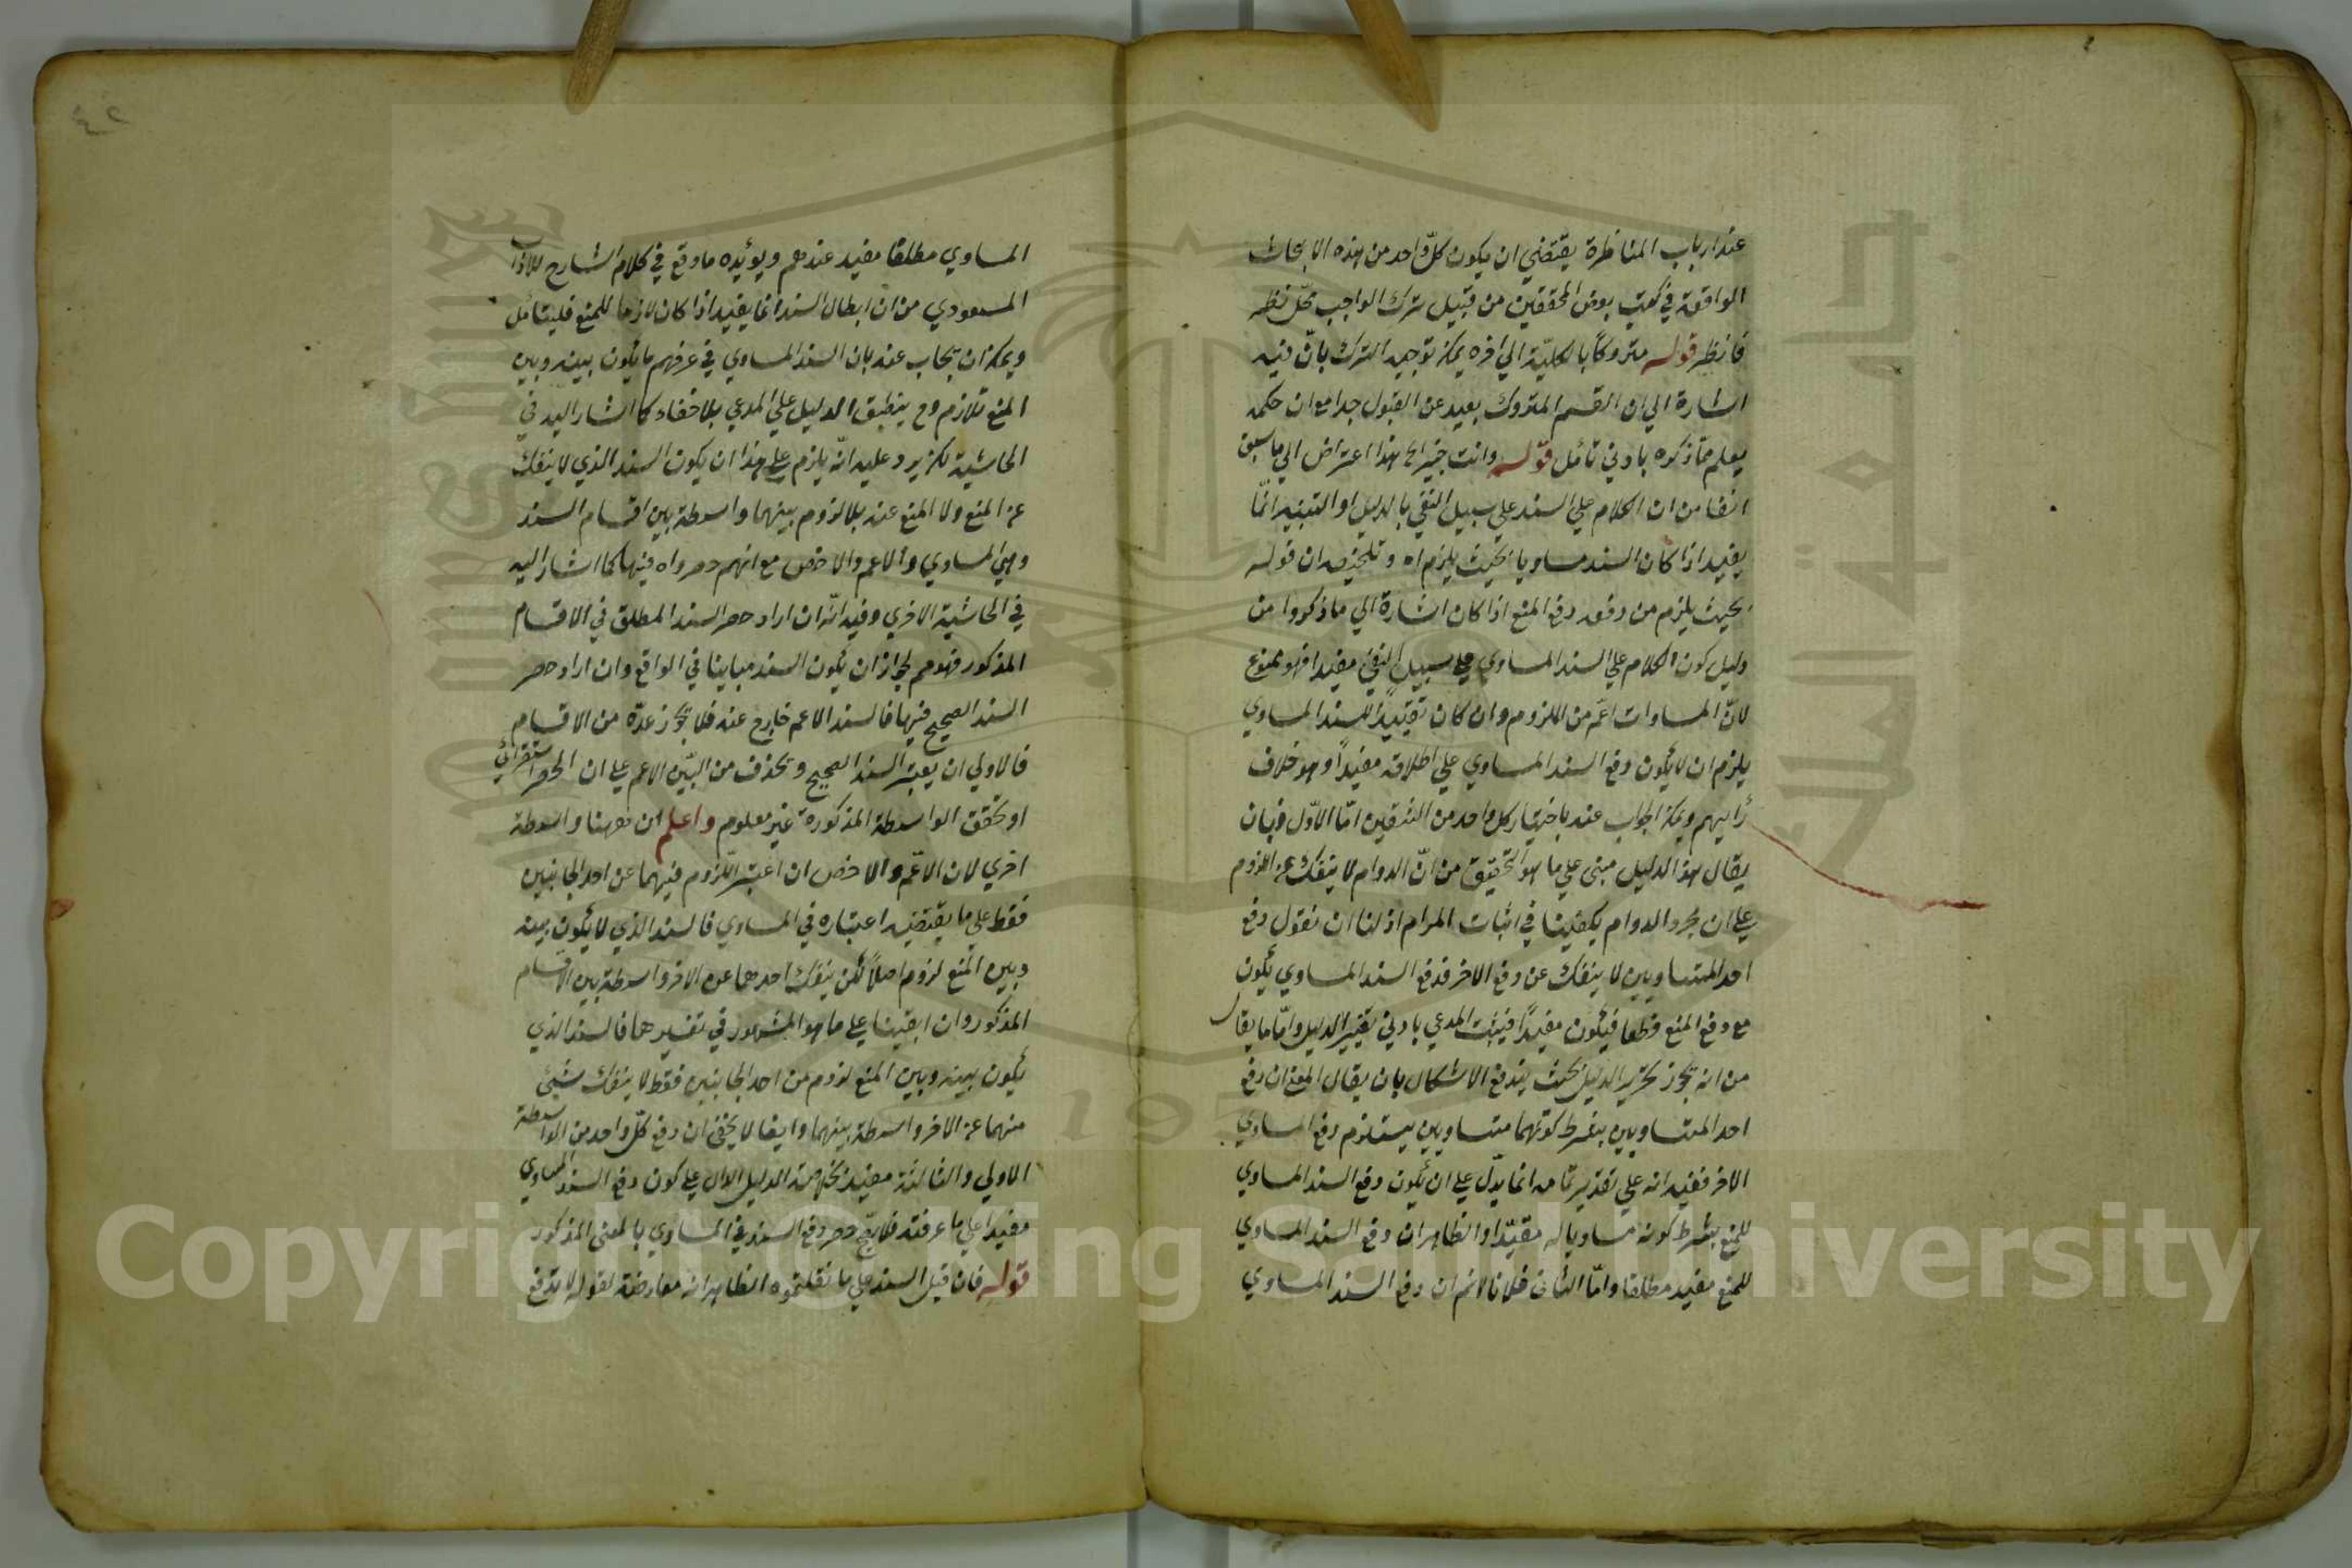 عند ارباب المناظرة يقتضي ان يكون كل واحد من هذه الابحاث
الواقعة في كتب بعض المحققين من قبيل ترك الواجب محل نظر
فانظر قوله متروكا بالكلية الي اخره يمكن توجيه الترك بان فيه
اشارة الي ان القسم المتروك بعيد عن القبول جدا مع ان حكمه
يعلم مما ذكره بادني تامل قوله وانت خبير الخ هذا اعتراض الي ما سبق
انفا من ان الكلام علي السند علي سبيل النفي بالدليل او التنبيه انما
يفيد اذا كان السند مساويا بحيث يلزم اه وتلخيصه ان قوله
بحيث يلزم من دفعه دفع المنع اذا كان اشارة الي ما ذكروا من
دليل كون الكلام علي السند المساوي علي سبيل النفي مفيدا فهو ممنوع
لان المساوات اعم من اللزوم وان كان تقييدا للسند المساوي
يلزم ان لا يكون دفع السند المساوي علي اطلاقه مفيدا وهو خلاف
رأيهم ويمكن الجواب عنه باختيار كل واحد من الشقين اما الاول فبان
يقال هذا الدليل مبني علي ما هو التحقيق من ان الدوام لا ينفك عن اللزوم
علي ان مجرد الدوام يكفينا في اثبات المرام اذ لنا ان نقول دفع
احد المتساويين لا ينفك عن دفع الاخر فدفع السند المساوي يكون
مع دفع المنع قطعا فيكون مفيدا فيثبت المدعي بادني تغيير الدليل واما ما يقال
من انه يجوز تحرير الدليل بحيث يندفع الاشكال بان يقال المعني ان دفع
احد المتساويين بشرط كونهما متساويين يستلزم دفع المساوي
الاخر ففيه انه علي تقدير تمامه انما يدل علي ان يكون دفع السند المساوي
للمنع بشرط كونه مساويا له مقيدا والظاهر ان دفع السند المساوي
للمنع مفيد مطلقا واما الثاني فلانا لا نم ان دفع السند المساوي
٤٢
المساوي مطلقا مفيد عندهم ويؤيده ما وقع في كلام الشارح للاداب
المسعودي من ان ابطال السند انما يفيد اذا كان لازما للمنع فليتامل
ويمكن ان يجاب عنه بان السند المساوي في عرفهم ما يكون بينه وبين
المنع تلازم وح ينطبق الدليل علي المدعي بلا خفاء كما اشار اليه في
الحاشية لكن يرد عليه انه يلزم علي هذا ان يكون السند الذي لا ينفك
عن المنع ولا المنع عنه بلا لزوم بينهما واسطة بين اقسام السند
وهي المساوي والاعم والاخص مع انهم حصرواه فيها كما اشار اليه
في الحاشية الاخري وفيه انه ان اراد حصر السند المطلق في الاقسام
المذكور فهو مم لجواز ان يكون السند مباينا في الواقع وان اراد حصر
السند الصحيح فيها فالسند الاعم خارج عنه فلا يجوز عده من الاقسام
فالاولي ان يعتبر السند الصحيح ويحذف من البين الاعم علي ان الحصر استقرائي
او تحقق الواسطة المذكورة غير معلوم واعلم ان ههنا واسطة
اخري لان الاعم والاخص ان اعتبر اللزوم فيهما عن احد الجانبين
فقط علي ما يقتضيه اعتباره في المساوي فالسند الذي لا يكون بينه
وبين المنع لزوم اصلا لكن ينفك احدهما عن الاخر واسطة بين الاقسام
المذكور وان ابقينا علي ما هو المشهور في تفسيرهما فالسند الذي
يكون بينه وبين المنع لزوم من احد الجانبين فقط لا ينفك شيئ
منهما عن الاخر واسطة بينهما وايضا لا يخفي ان دفع كل واحد من الواسطة
الاولي والثالثة مفيد الدليل الدال علي كون دفع السند المساوي
مفيدا علي ما عرفته فلا يصح حصر دفع السند في المساوي بالمعني المذكور
قوله فان قيل السند علي ما نقلتموه الظاهر انه معارضة لقوله لا يدفع